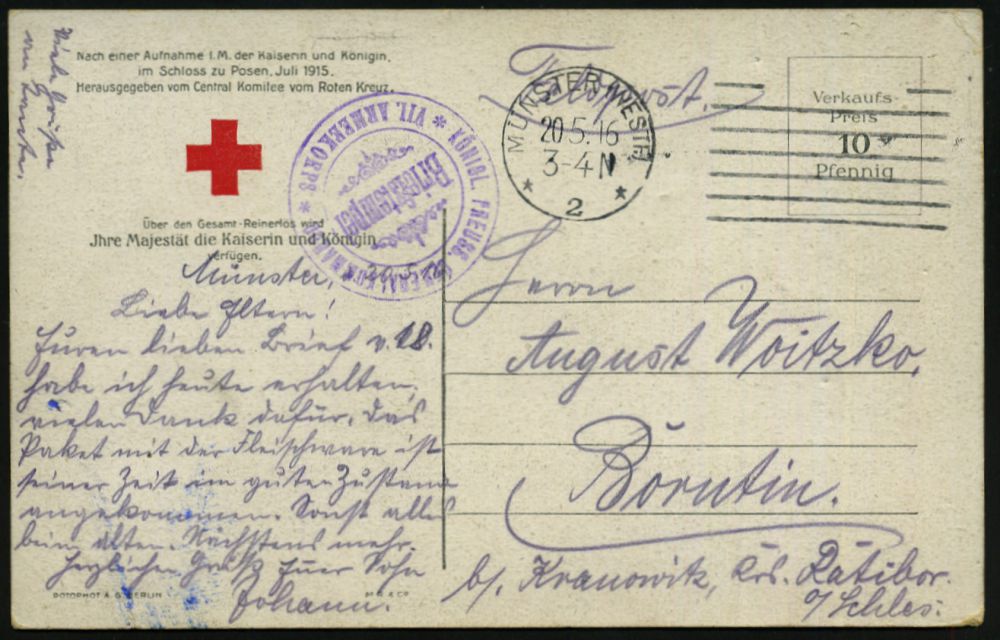 Viele Grüße
an Günter.
Nach einer Aufnahme I. M. der Kaiserin und Königin,
im Schloss zu Posen, Juli 1915.
Herausgegeben vom Central Komitee vom Roten Kreuz.
Über den Gesamt-Reinerlös wird
Jhre Majestät die Kaiserin und Königin
verfügen.
KÖNIGL. PREUSS. GENERALKOMMANDO * VII. ARMEEKORPS *
Briefstempel
Feldpost.
MÜNSTER (WESTF.)
20.5.16
3-4 N
* 2 *
Verkaufs-
Preis
10
Pfennig
Münster, 20.5.16
Liebe Eltern!
Euren lieben Brief v. 18.
habe ich heute erhalten,
vielen Dank dafür. Das
Paket mit der Fleischware ist
seiner Zeit im guten Zustand
angekommen. Sonst alles
beim alten. Nächstens mehr.
Herzlichen Gruß Euer Sohn
Johann.
Herrn
August Woitzko,
Bornutin.
b/ Kranowitz, Krs. Ratibor.
o/Schles:
ROTOPHOT A. G. BERLIN